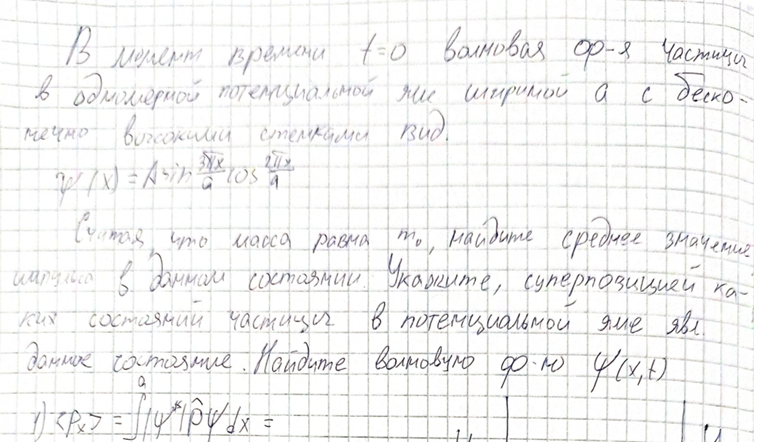 В момент времени t=0 волновая ф-я частицы
в одномерной потенциальной яме шириной a с беско-
нечно высокими стенками вид.
ψ(x) = A sin 3πx/a cos 2πx/a
Считая, что масса равна m₀, найдите среднее значение
импульса в данном состоянии. Укажите, суперпозицией ка-
ких состояний частицы в потенциальной яме явл.
данное состояние. Найдите волновую ф-ю ψ(x,t)
1) <Pₓ> = ∫ᵃ|ψ*|p̂ψdx =